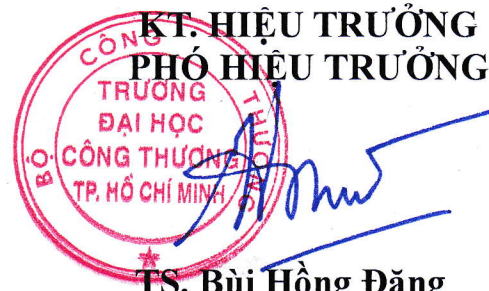 KT. HIỆU TRƯỞNG
PHÓ HIỆU TRƯỞNG
BỘ CÔNG THƯƠNG
TRƯỜNG
ĐẠI HỌC
CÔNG THƯƠNG
TP. HỒ CHÍ MINH
TS. Bùi Hồng Đăng